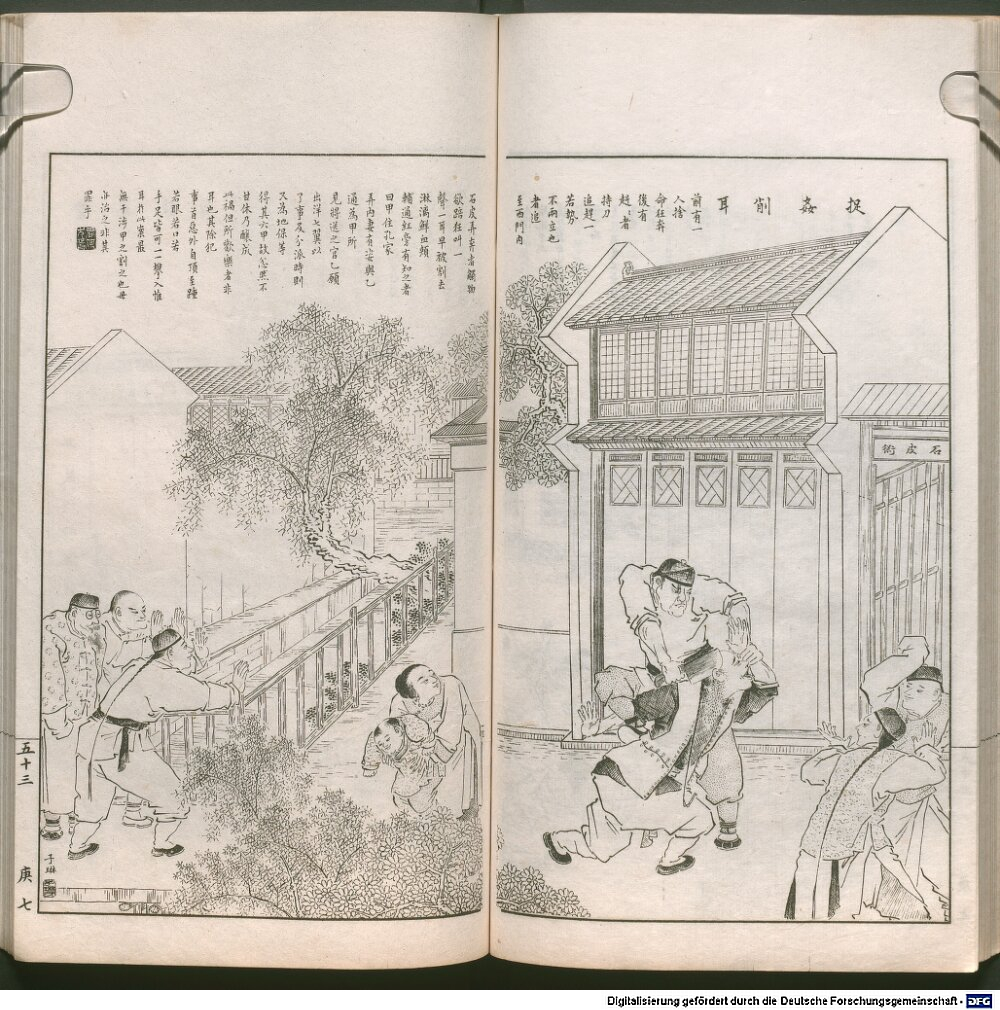 捉姦削耳
前有一
人捨
命狂奔
後有
趕者
持刀
追趕一
若勢
不兩立也
者追
至西門內
石皮弄弃者觸物
欲踣狂叫一
聲一耳早被割去
淋漓鮮血頰
輔通紅旁有知之者
曰甲住孔家
弄內妻有姿與乙
通為甲所
見將送之官乙願
出洋七翼以
了事及分派時則
又為地保等
得其六甲故忿然不
甘休乃釀成
此禍但所歡樂者非
耳也其除犯
事首惡外自頂至踵
若眼若口若
手足皆可一一攀入惟
耳於此案最
無干涉甲之割之也毋
亦治之非其
罪乎
石皮衖
子琳
五十三
庚
七
Digitalisierung gefördert durch die Deutsche Forschungsgemeinschaft - DFG